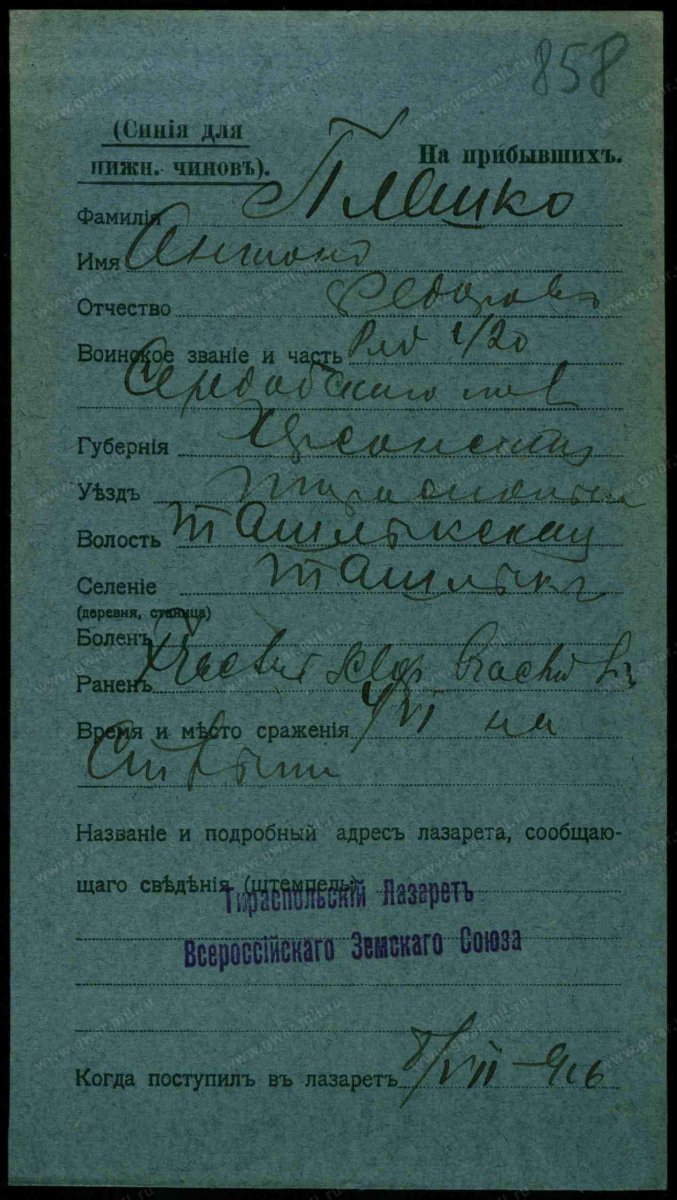 858
(Синія для
нижн. чиновъ).
На прибывшихъ.
Фамилія Плашко
Имя Антонъ
Отчество Федоровъ
Воинское званіе и часть Ряд 1/20
Сердобскаго
Губернія Херсонская
Уѣздъ
Волость Ташлыкская
Селеніе Ташлыкъ
(деревня, станица)
Боленъ
Раненъ
Время и мѣсто сраженія 4/VI на
Стрыпи
Названіе и подробный адресъ лазарета, сообщаю-
щаго свѣдѣнія (штемпель)
Тираспольскій Лазаретъ
Всероссійскаго Земскаго Союза
Когда поступилъ въ лазаретъ /VII–916
www.gwar.mil.ru